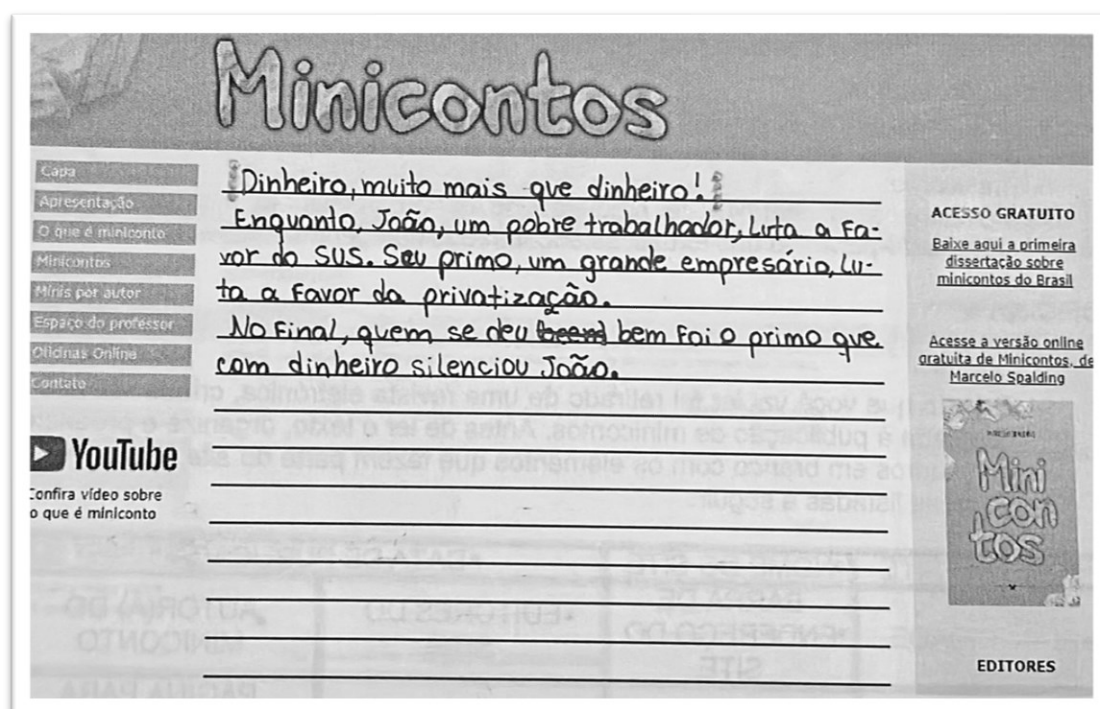 Minicontos
Capa
Apresentação
O que é miniconto
Minicontos
Minis por autor
Espaço do professor
Oficinas Online
Contato
YouTube
Confira vídeo sobre
o que é miniconto
Dinheiro, muito mais que dinheiro!
Enquanto, João, um pobre trabalhador, luta a fa-
vor do SUS. Seu primo, um grande empresário, lu-
ta a favor da privatização.
No final, quem se deu bem foi o primo que,
com dinheiro silenciou João.
ACESSO GRATUITO
Baixe aqui a primeira
dissertação sobre
minicontos do Brasil
Acesse a versão online
gratuita de Minicontos, de
Marcelo Spalding
Mini
con
tos
EDITORES